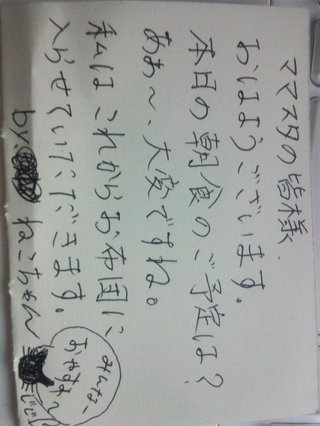 ママスタの皆様、
おはようございます。
本日の朝食のご予定は？
あぁ〜、大変ですね。
私はこれからお布団に
入らせていただきます。
by. ねこちゃん
みんな、
おやすみ〜